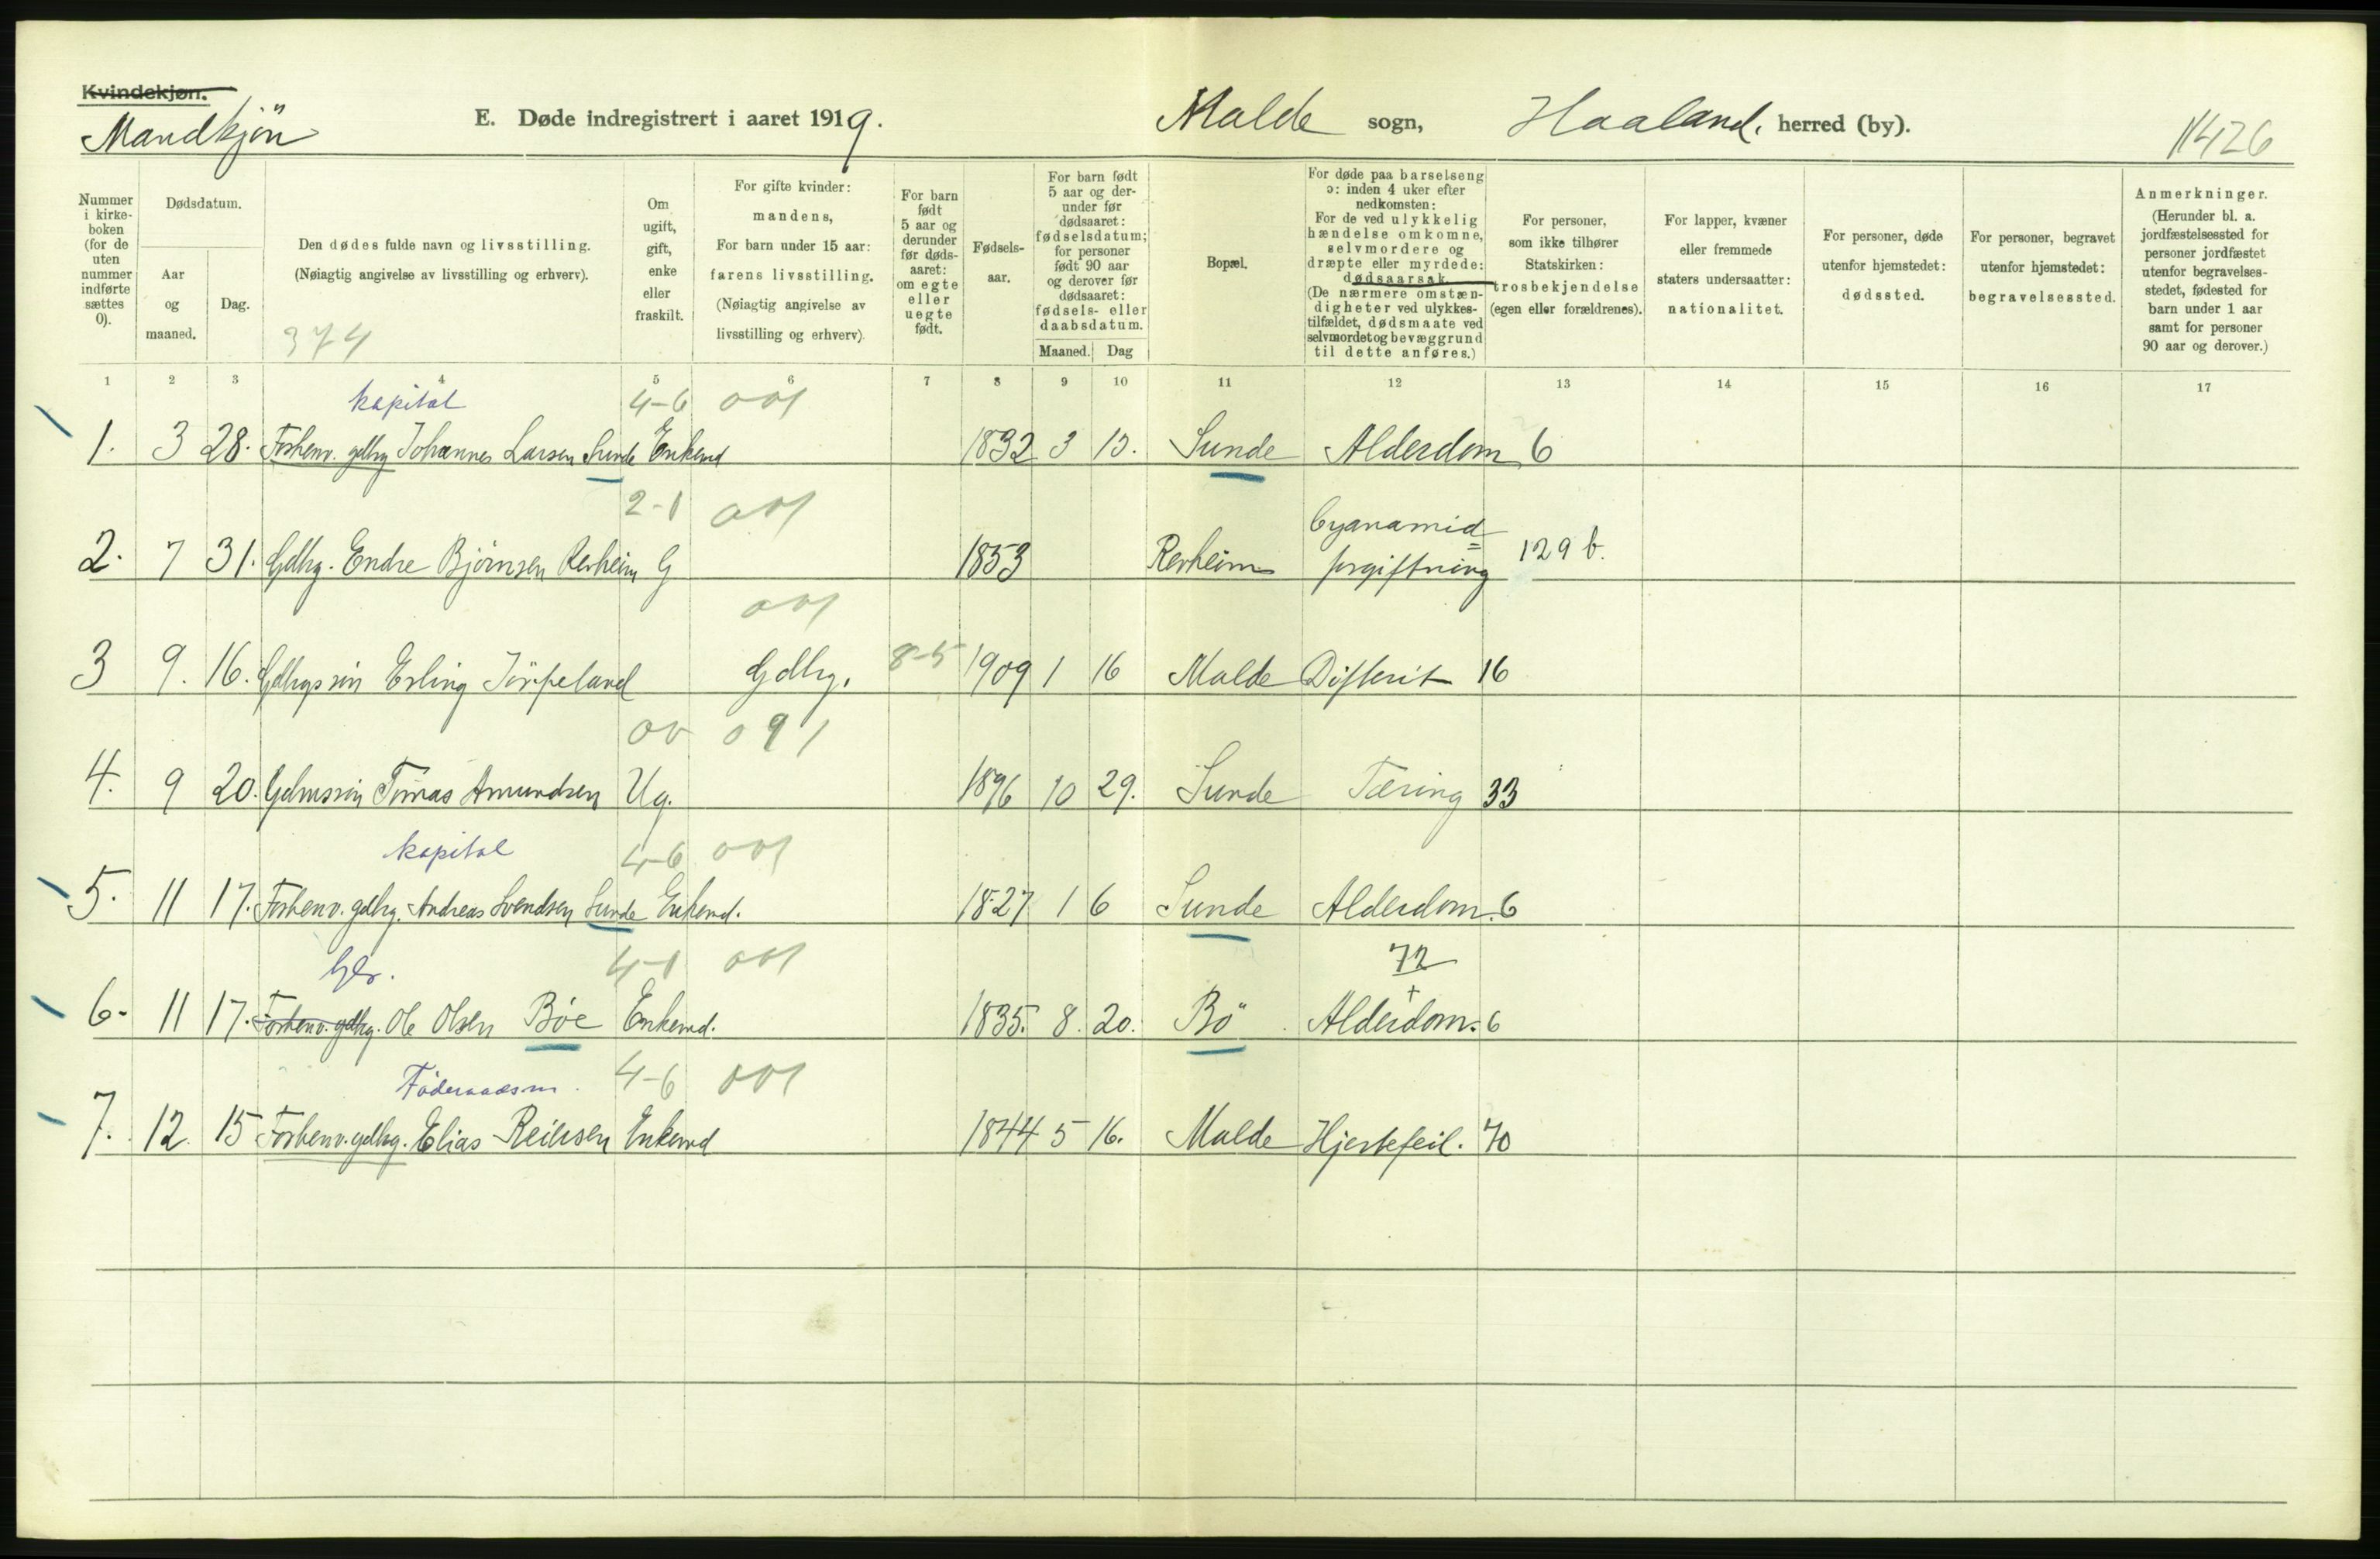 Kvindekjøn.
Mandkjön
E. Døde indregistrert i aaret 1919.
Malde sogn, Haaland. herred (by).
11426
Nummer i kirke-boken (for de uten nummer indførte sættes 0).
Dødsdatum.
Aar og maaned.
Dag.
Den dødes fulde navn og livsstilling.
(Nøiagtig angivelse av livsstilling og erhverv).
374
Om ugift, gift, enke eller fraskilt.
For gifte kvinder: mandens, For barn under 15 aar: farens livsstilling. (Nøiagtig angivelse av livsstilling og erhverv).
For barn født 5 aar og derunder før døds-aaret: om egte eller uegte født.
Fødsels-aar.
For barn født 5 aar og der-under før dødsaaret: fødselsdatum; for personer født 90 aar og derover før dødsaaret: fødsels- eller daabsdatum.
Maaned. Dag
Bopæl.
For døde paa barselseng ɔ: inden 4 uker efter nedkomsten: For de ved ulykkelig hændelse omkomne, selvmordere og dræpte eller myrdede: dødsaarsak. (De nærmere omstæn-digheter ved ulykkes-tilfældet, dødsmaate ved selvmordet og bevæggrund til dette anføres.)
For personer, som ikke tilhører Statskirken: trosbekjendelse (egen eller forældrenes).
For lapper, kvæner eller fremmede staters undersaatter: nationalitet.
For personer, døde utenfor hjemstedet: dødssted.
For personer, begravet utenfor hjemstedet: begravelsessted.
Anmerkninger. (Herunder bl. a. jordfæstelsessted for personer jordfæstet utenfor begravelses-stedet, fødested for barn under 1 aar samt for personer 90 aar og derover.)
1 2 3 4 5 6 7 8 9 10 11 12 13 14 15 16 17
kapital 4-6 001
1. 3 28. Forhenv. gdbr Johannes Larsen Sunde Enkemd 1832 3 13. Sunde Alderdom 6
2-1 001
2. 7 31. Gdbr. Endre Björnsen Revheim G 1853 Revheim Cyanamid=
forgiftning 129 b.
001
3 9. 16. Gdbrs sön Erling Jörpeland Gdbr. 8-5 1909 1 16 Malde Difterit 16
00 091
4. 9 20. Tomas Amundsen Ug. 1896 10 29. Sunde Tæring 33
kapital 4-6 001
5. 11 17. Forhenv. gdbr. Andreas Svendsen Sunde Enkemd. 1827 1 6 Sunde Alderdom. 6
4-1 001 72
6. 11 17. Forhenv. gdbr. Ole Olsen Böe Enkemd. 1835. 8. 20. Bö Alderdom. 6
Föderaadsm. 4-6 001
7. 12. 15 Forhenv. gdbr. Elias Reiersen Enkemd 1844 5 16. Malde Hjertefeil. 70